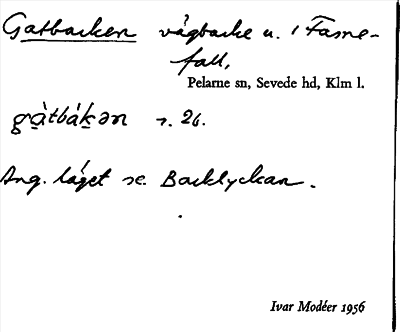 Gatbacken vägbacke u. i Fame-
fall,
Pelarne sn, Sevede hd, Klm l.
s. 26.
Ang. läget se Backlyckan.
Ivar Modéer 1956